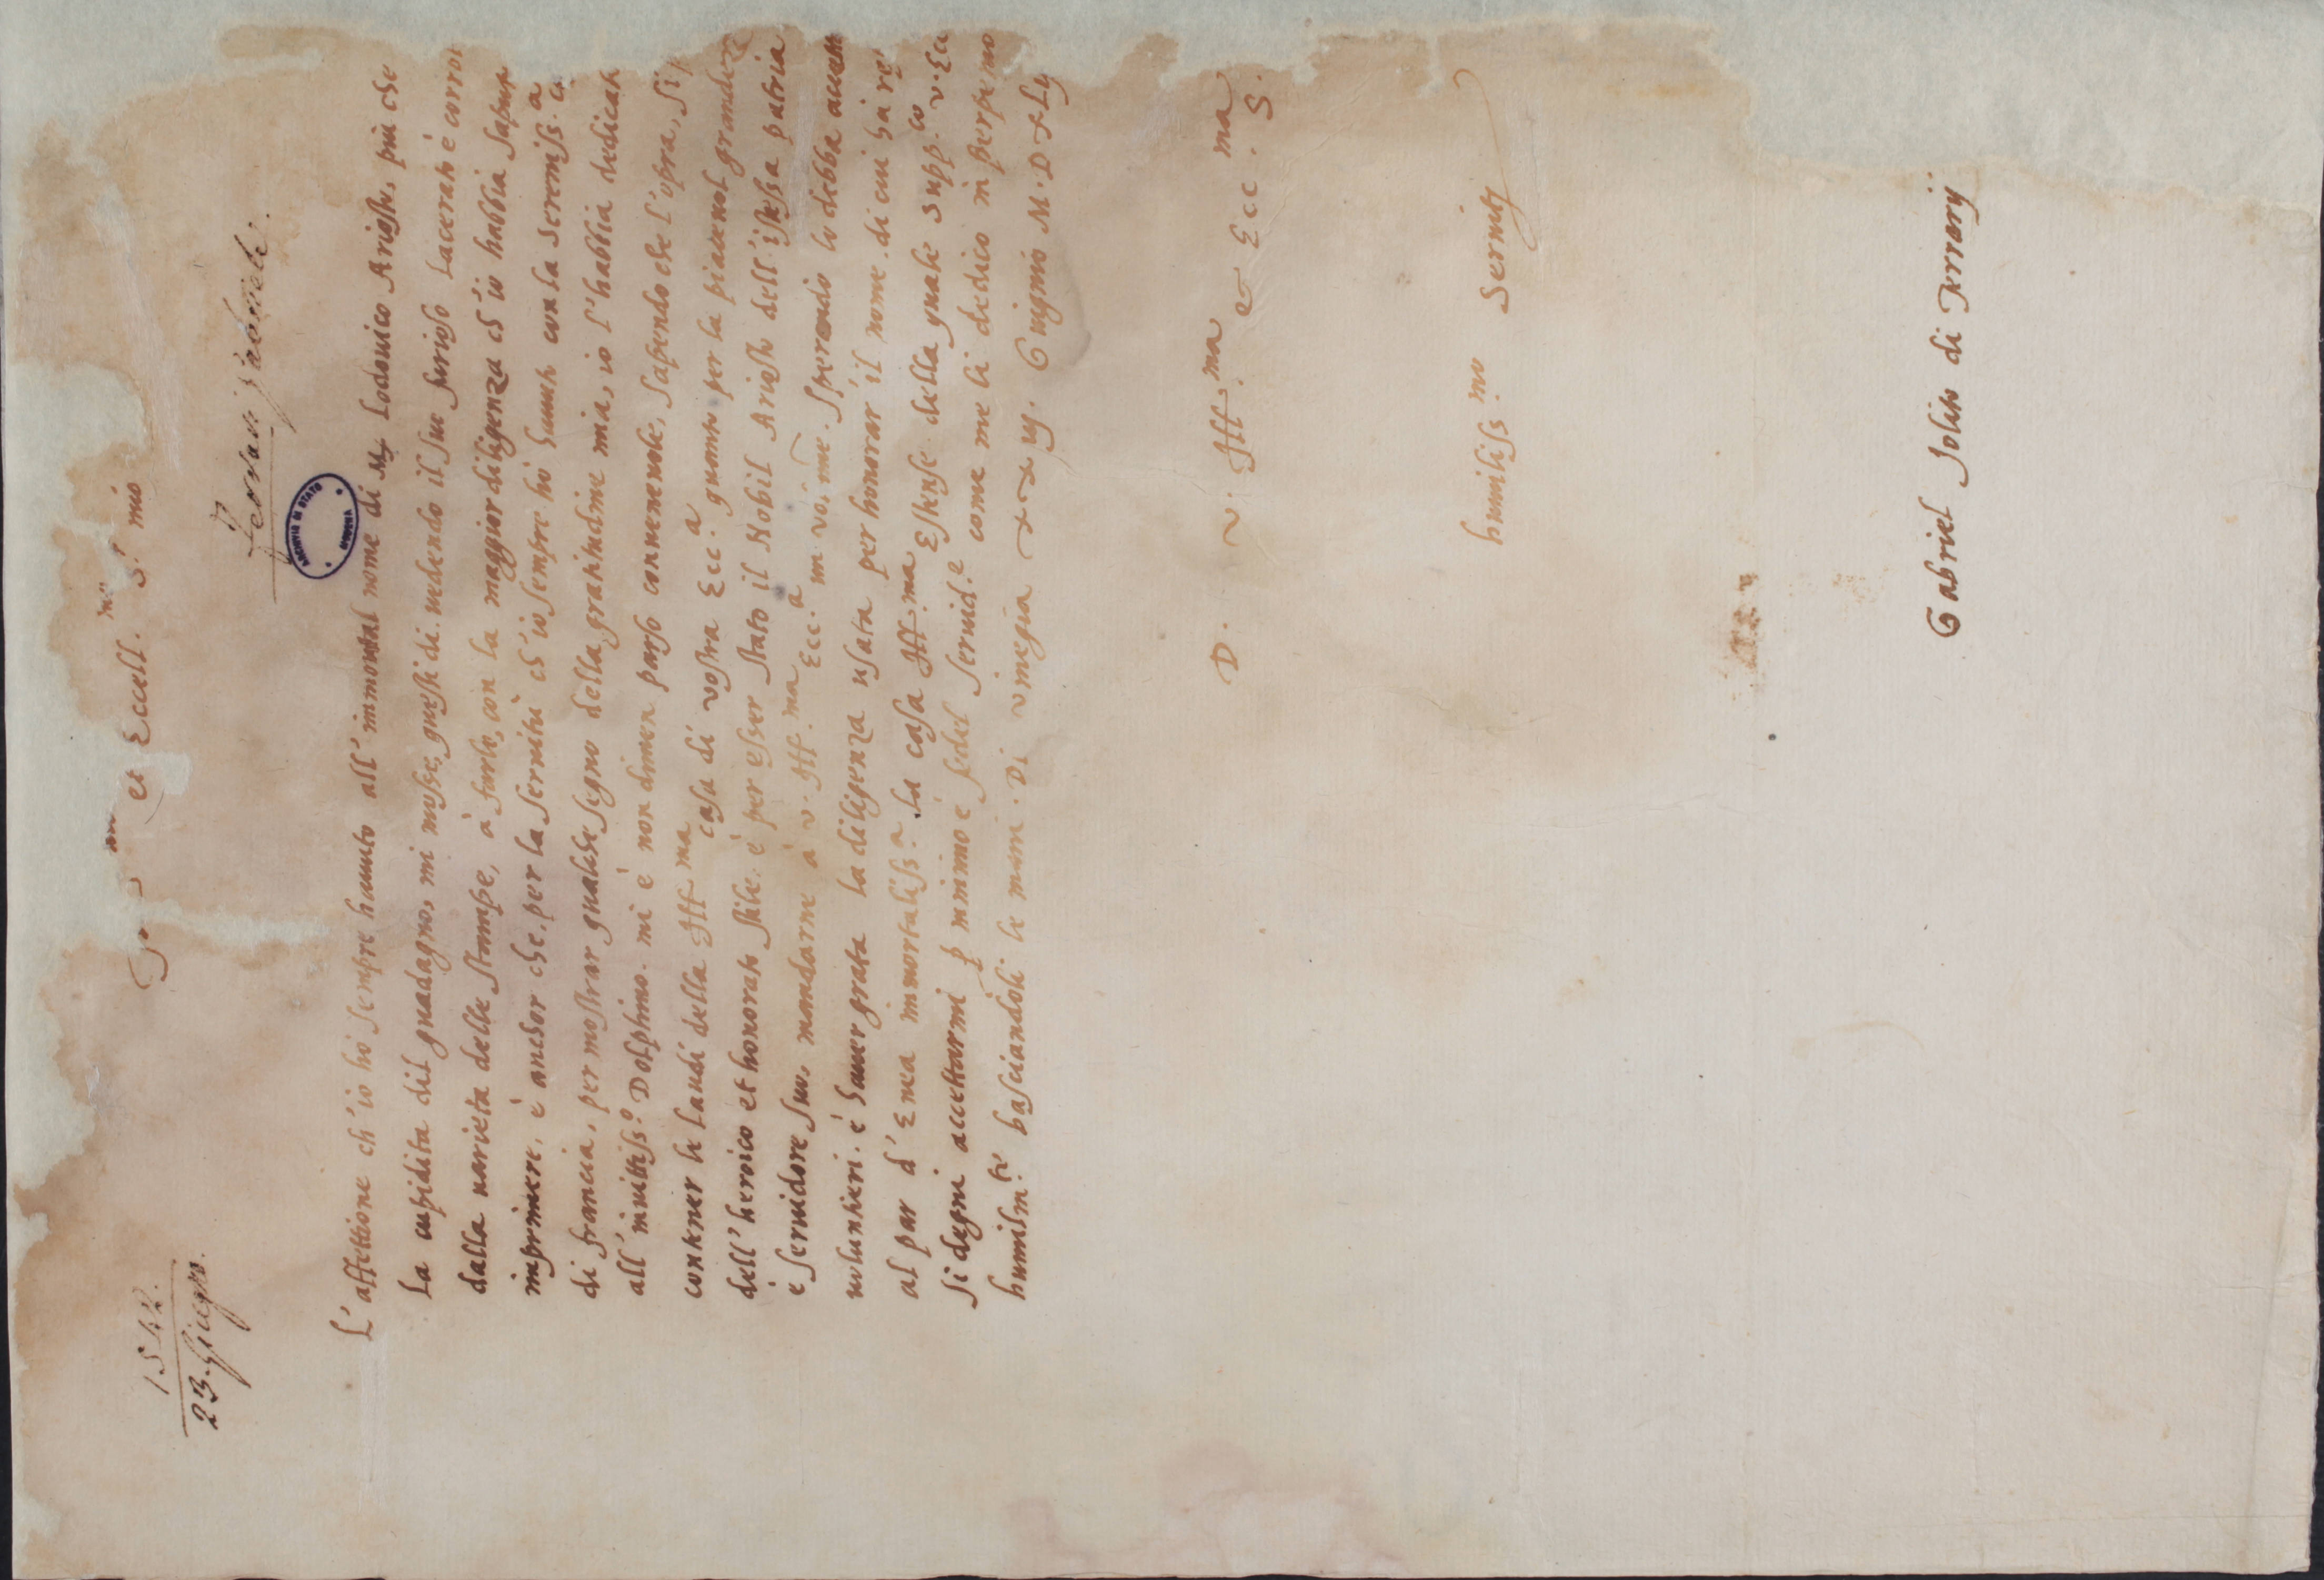 1542.
23. Giugno.
et Eccell.mo S.r mio
Ferrari Gabriele.
ARCHIVIO DI STATO
MODENA
L'affettione ch'io hò sempre hauuto all'immortal nome di M. Lodouico Ariosto, più che
la cupidita dil guadagno, mi mosse, questi dì. uedendo il suo furioso lacerato è corrot
dalla uarieta delle stampe, à farlo, con la maggior diligenza ch'io habbia saputo
imprimere. è anchor che, per la seruitù ch'io sempre hò hauuto con la sereniss.a
di francia, per mostrar qualche segno della gratitudine mia, io l'habbia dedicato
all'inuittiss.o Dolphino. mi è non dimen parso conueneuole, sapendo che l'opra, si
contener le laudi della Ill.ma casa di vostra Ecc.a quanto per la piaceuol grandezz
dell'heroico et honorato stile. è per esser stato il Nobil Ariosto dell'istessa patria
è seruidore suo, mandarne à v. Ill.ma Ecc.a un vo.me. sperando lo debba accett
uoluntieri. è hauer grata la diligenza usata per honorar il nome. di cui hà re
al par d'Enea immortaliss.a la casa Ill.ma Estense. della quale supp.co v. Ecc
si degni accettarmi p minimo è fedel seruid.e come me li dedico in perpetuo
humilm.te basciandoli le mani. Di vinegia xxiij. Giugnio M. D xLij
D. v. Ill.ma et Ecc.ma S.
humiliss.mo Seruit
Gabriel Jolito di Ferrarij